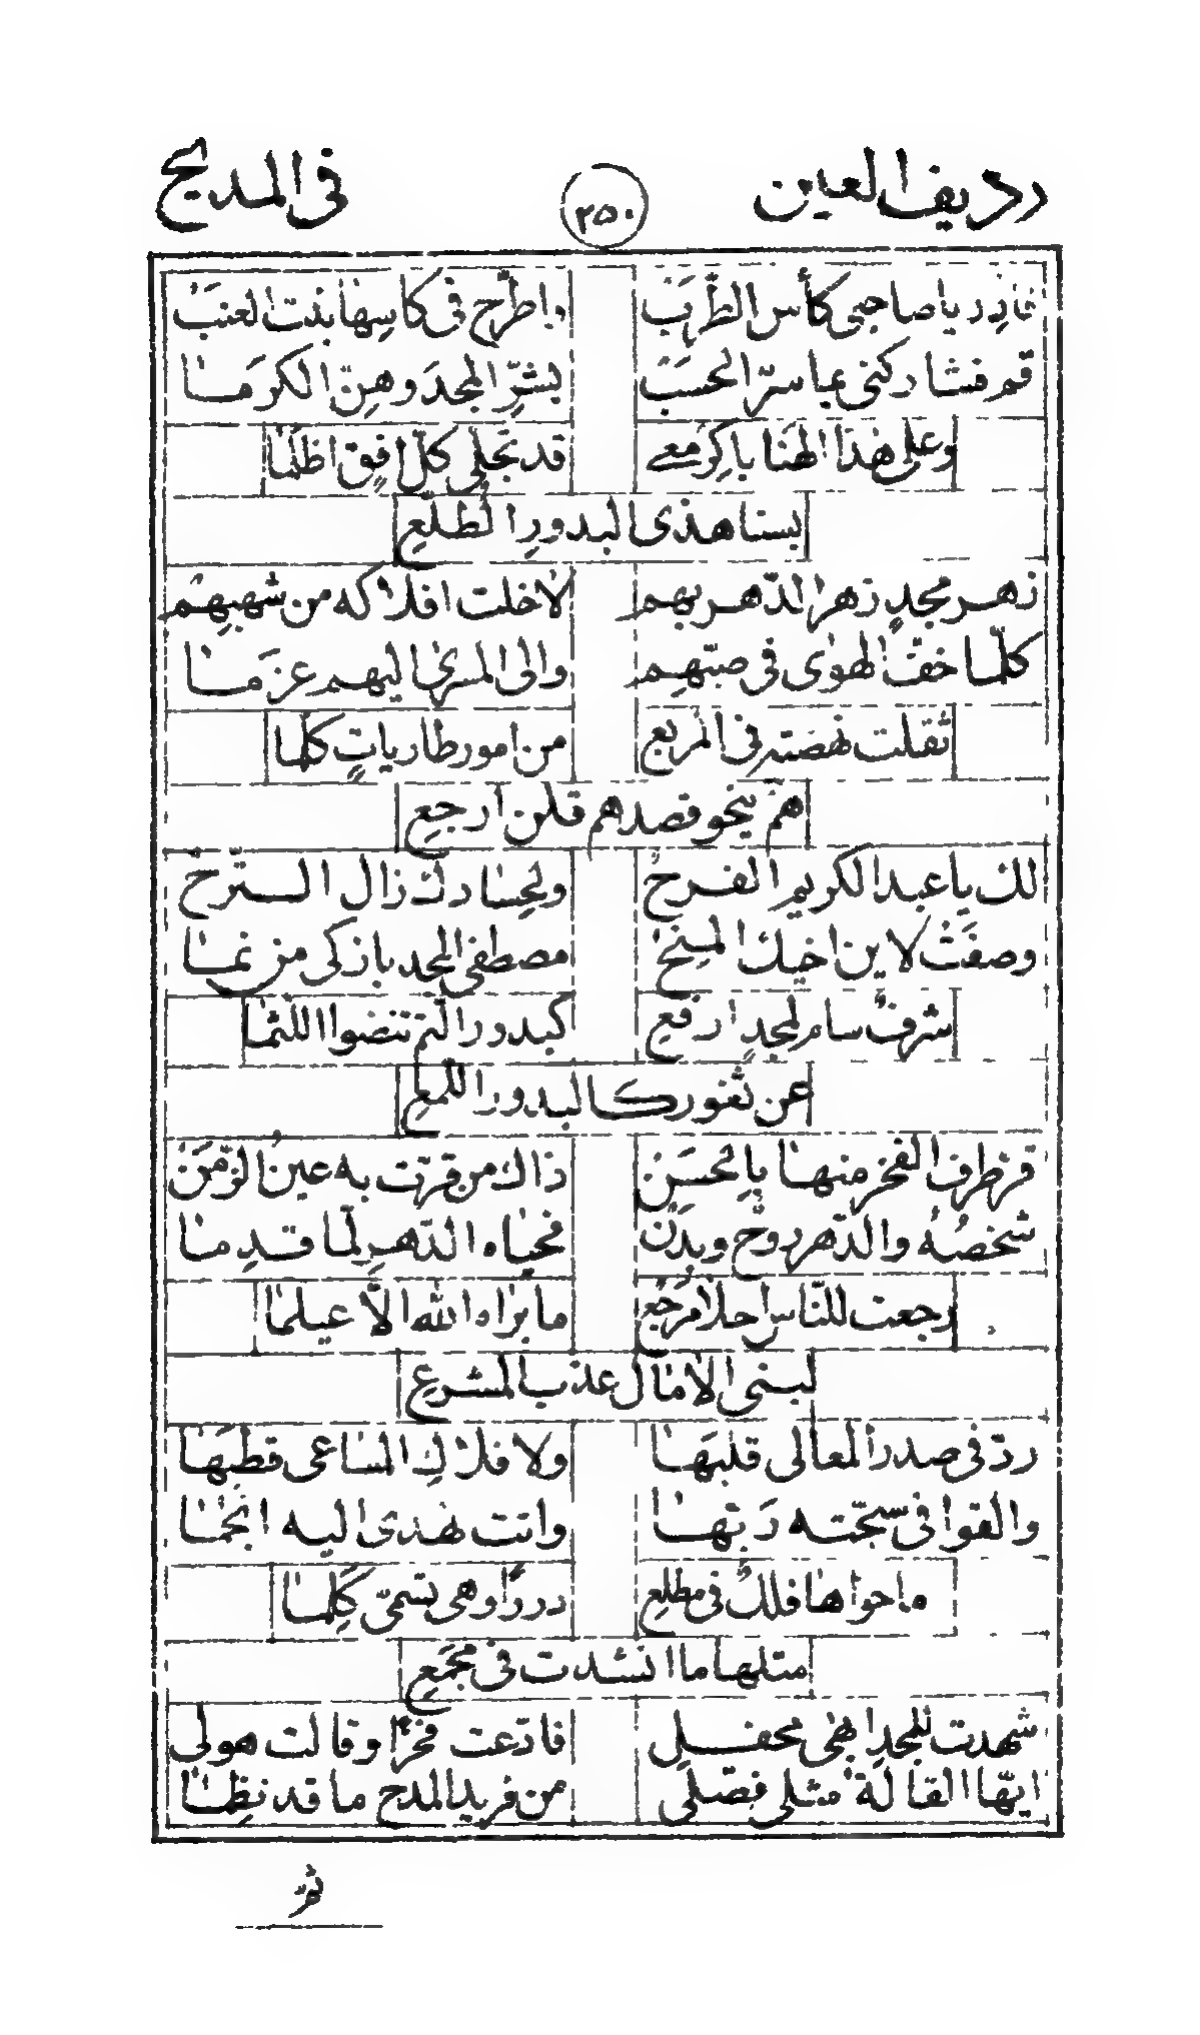 رديف العين ٢٥٠ في المديح
يا صاحبي كأس الطَّرَبْ واطّرح في كاسِها بنت العنبْ
قم فشاركني بما سرّ الحسبْ بشرِّ المجدَ وهنّ الكرمَا
وعلى هٰذا الهنا باكِرْ معي قد تجلى كلّ افقٍ اظلما
بسنا هذى البدورِ الطلّعِ
زهر مجدٍ زهرا الدّهر بهم لاخلت افلاكه من شهبهم
كلّما خفّ الهوى في صبّهم والى المسرى اليهم عزمَا
ثقلت نهضته في المربع من امور طارياتٍ كلّما
همّ ينحو قصدهم قلن ارجعِ
لك يا عبد الكريم الفرحُ ولحسادك زال السترحُ
وصفَتْ لابن اخيك المنحُ مصطفى المجد بازكى من نمَا
شرفٌ سام لمجدٍ ارفعِ كبدور التمّ تنضوا اللثما
عن ثغور كالبدور اللمعِ
قرّ طرف الفخر منها بالحسَنْ ذاك من قرّت به عينُ الزّمَنْ
شخصُهُ والدّهر روحٌ وبدَنْ فحياه الدّهر لمّا قدِمَا
رجعت للنّاس احلا مرجع ما براه الله الّا عيلما
لبنى الامال عذب المشرعِ
ردّ في صدر المعالى قلبَها ولافلاكِ المساعى قطبَهَا
والقوافى سبّحته رَبّها وانت تهدى اليه انجُمَا
ما حواها فلكٌ في مطلعِ دررًا وهى تسمىّ كَلِما
مثلها ما انشدت في مجمَعِ
شهدت للمجدِ ابهى محفلِ فادّعت فخرًا وقالت هو لى
ايّها القالة مثلي فصّلى من فريد المدح ما قد نظما